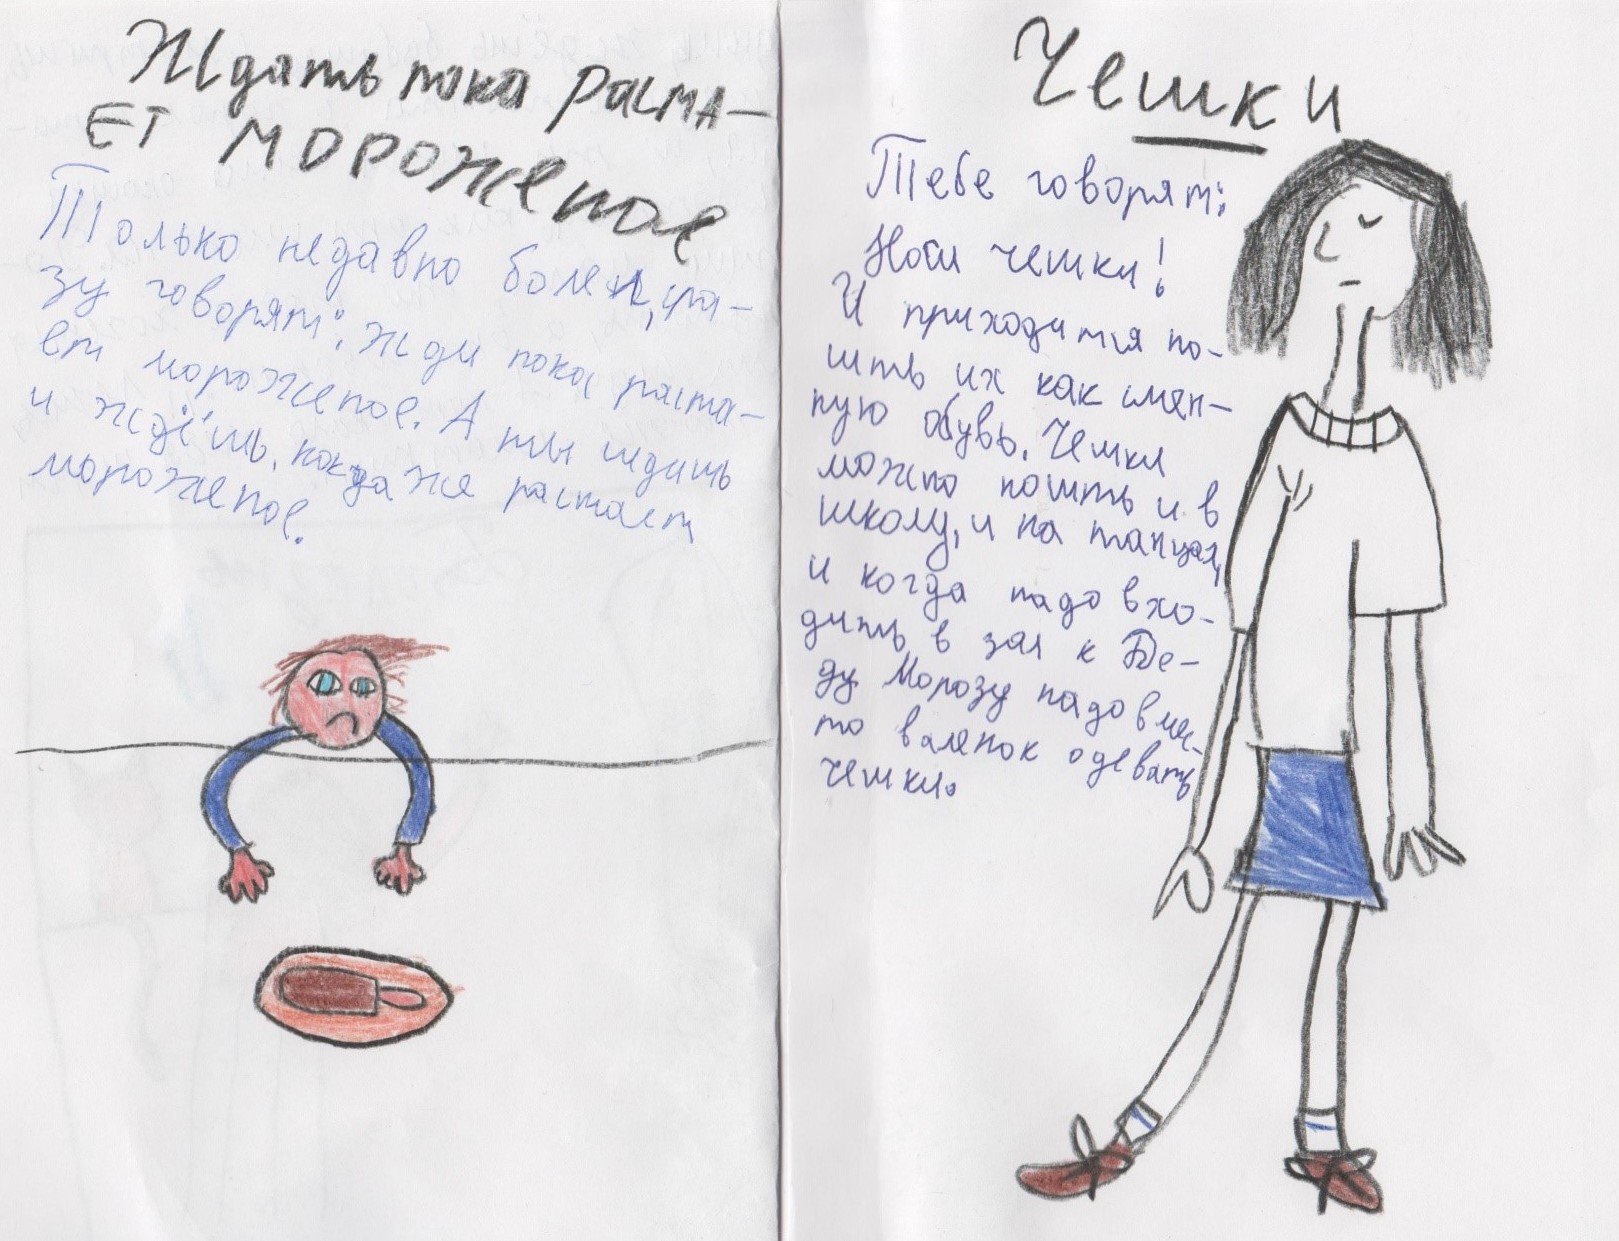 Ждать пока раста-
ет мороженое
Только недавно болел, сра-
зу говорят: жди пока раста-
ет мороженое. А ты сидишь
и ждёшь, когда же растает
мороженое.
Чешки
Тебе говорят:
Носи чешки!
И приходится но-
сить их как смен-
ную обувь. Чешки
можно носить и в
школу, и на танцах,
и когда надо вхо-
дить в зал к Де-
ду Морозу надо вмес-
то валенок одевать
чешки.